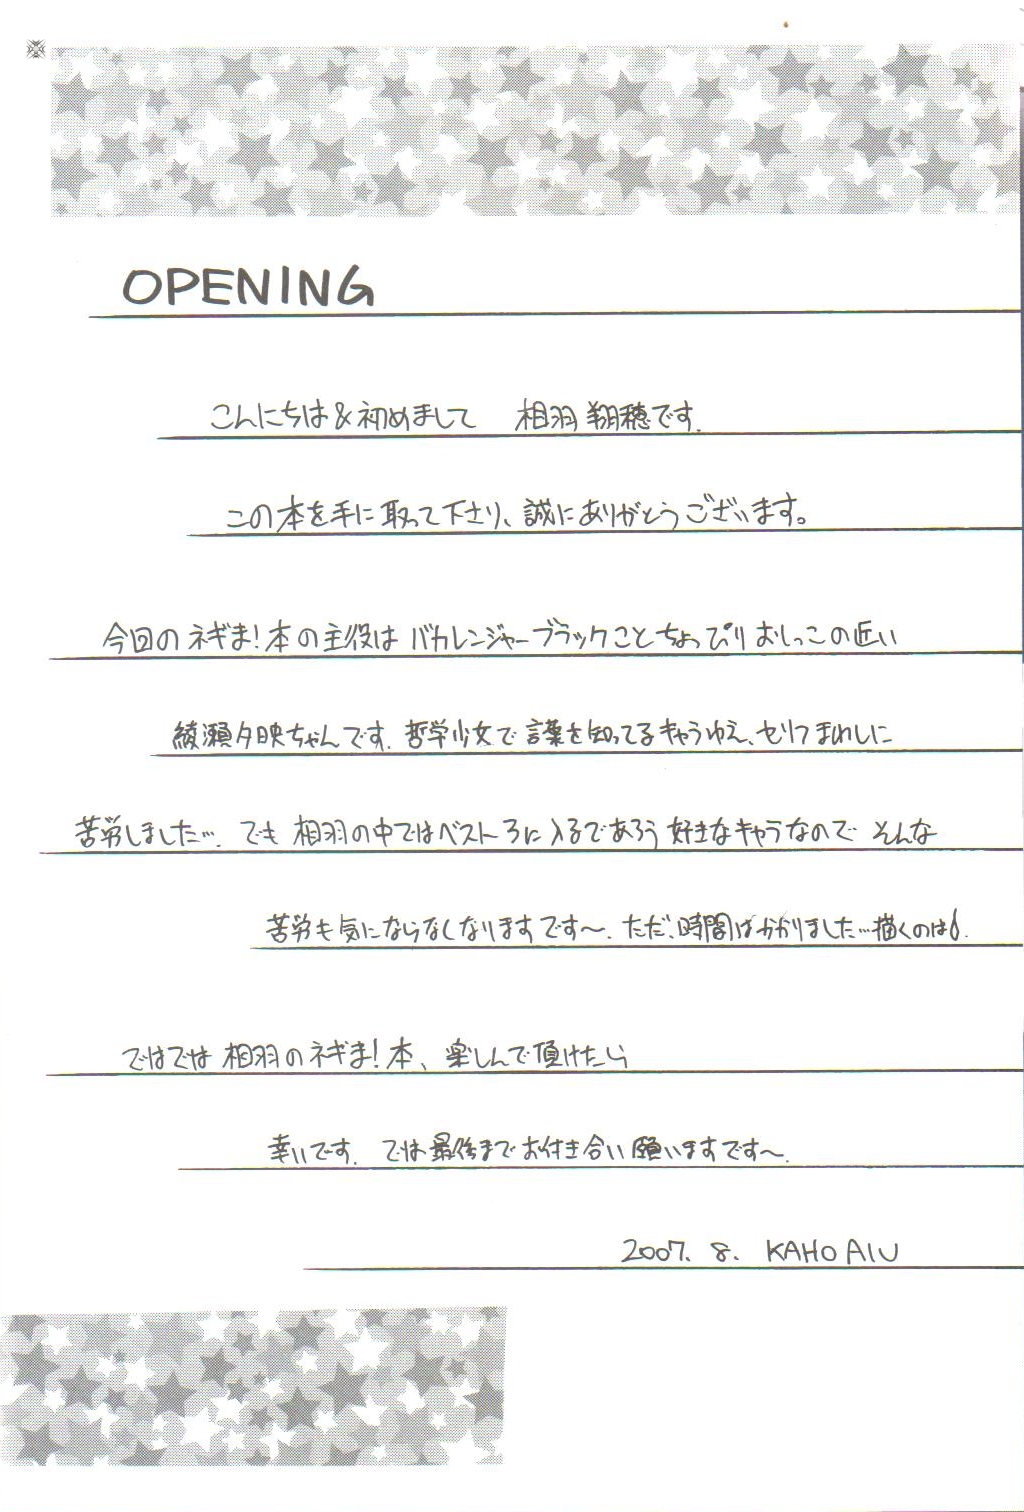 OPENING
こんにちは&初めまして 相羽 翔穂です.
この本を手に取って下さり、誠にありがとうございます。
今回のネギま!本の主役は バカレンジャーブラックこと ちょっぴり おしっこの近い
綾瀬夕映ちゃんです. 哲学少女で 言葉を知ってるキャラゆえ、セリフまわしに
苦労しました…. でも 相羽の中ではベスト3に入るであろう 好きなキャラなので そんな
苦労も気にならなくなりますです〜. ただ、時間はかかりました…描くのは.
ではでは 相羽のネギま!本、楽しんで頂けたら
幸いです. では最後までお付き合い 願いますです〜.
2007. 8. KAHO AIU